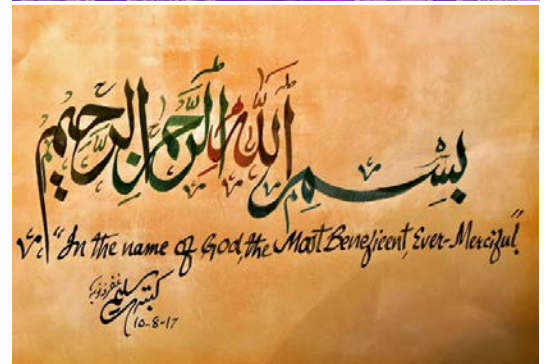 بِسْمِ اللّٰهِ الرَّحْمٰنِ الرَّحِيْمِ
"In the name of God, the Most Beneficent, Ever-Merciful."
10-8-17